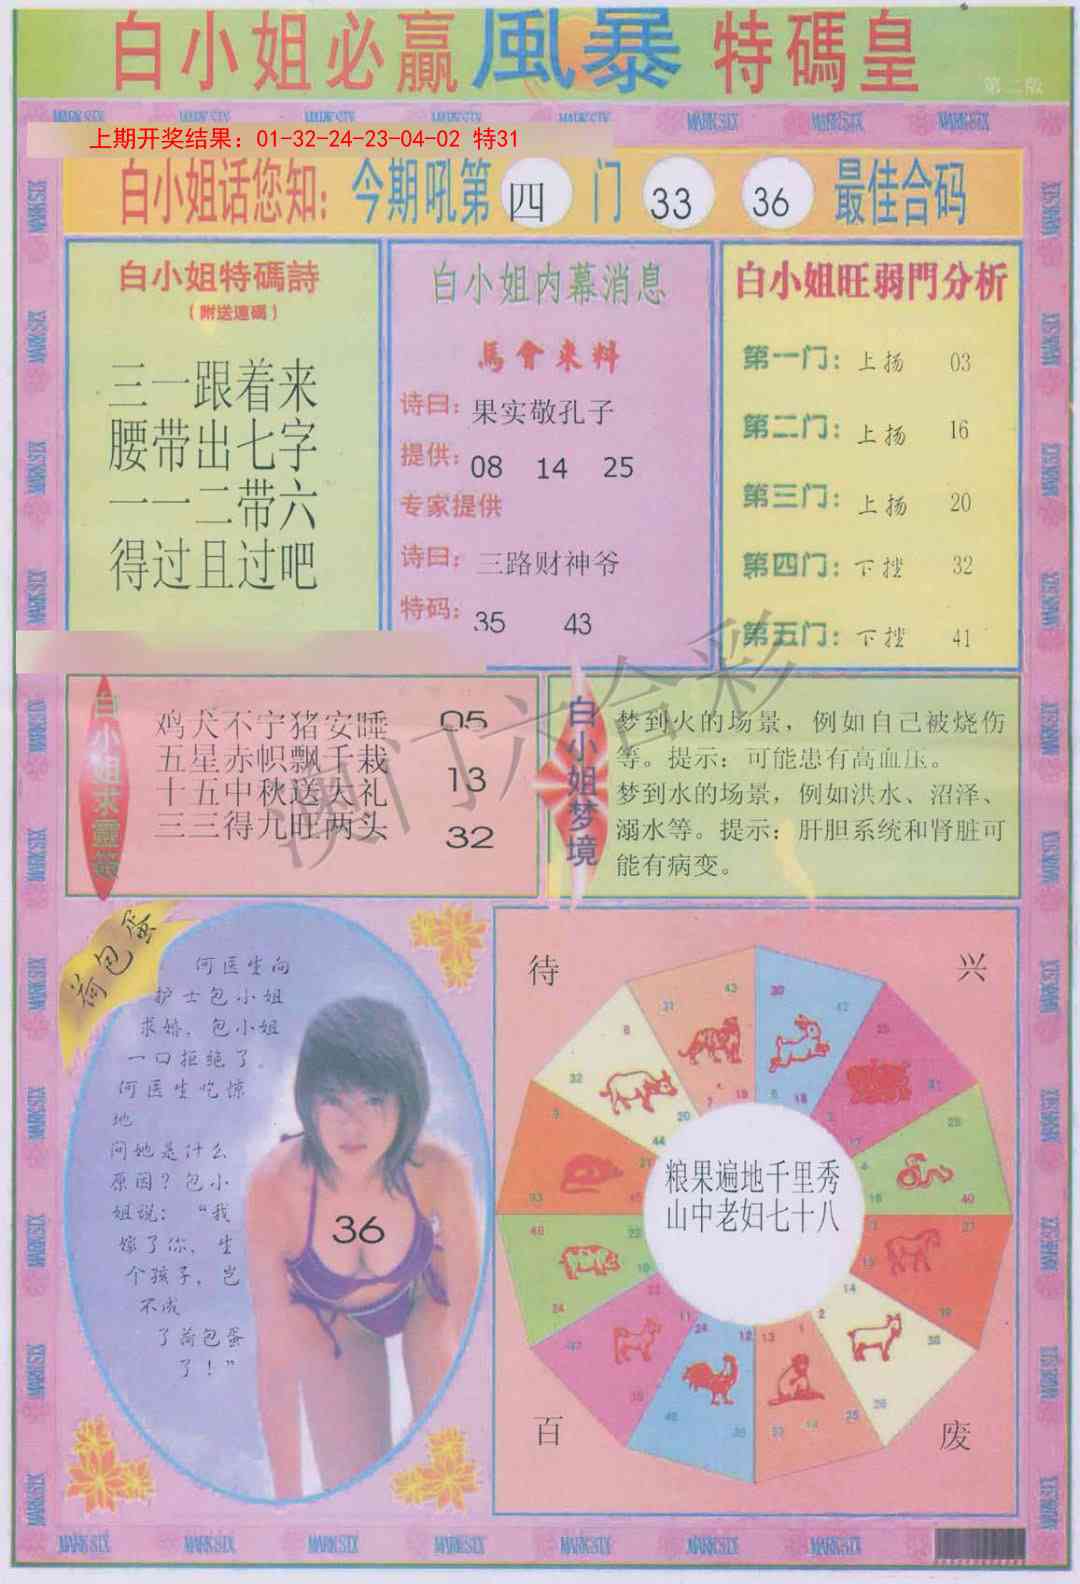 白小姐必赢風暴特碼皇
第二版
MARK SIX MARK SIX MARK SIX MARK SIX MARK SIX MARK SIX MARK SIX MARK SIX
上期开奖结果：01-32-24-23-04-02 特31
白小姐话您知：今期吼第四门 33 36 最佳合码
白小姐特碼詩
（附送連碼）
三一跟着来
腰带出七字
一一二带六
得过且过吧
白小姐内幕消息
馬會来料
诗曰：果实敬孔子
提供：08 14 25
专家提供
诗曰：三路财神爷
特码：35 43
白小姐旺弱門分析
第一门：上扬 03
第二门：上扬 16
第三门：上扬 20
第四门：下挫 32
第五门：下挫 41
白小姐求靈签
鸡犬不宁猪安睡 05
五星赤帜飘千栽
十五中秋送大礼 13
三三得九旺两头 32
白小姐梦境
梦到火的场景，例如自己被烧伤
等。提示：可能患有高血压。
梦到水的场景，例如洪水、沼泽、
溺水等。提示：肝胆系统和肾脏可
能有病变。
澳门六合彩
荷包蛋
何医生向
护士包小姐
求婚，包小姐
一口拒绝了。
何医生吃惊
地
问她是什么
原因？包小
姐说：“我
嫁了你，生
个孩子，岂
不成
了荷包蛋
了！”
36
待 兴
粮果遍地千里秀
山中老妇七十八
百 废
MARK SIX MARK SIX MARK SIX MARK SIX MARK SIX MARK SIX MARK SIX